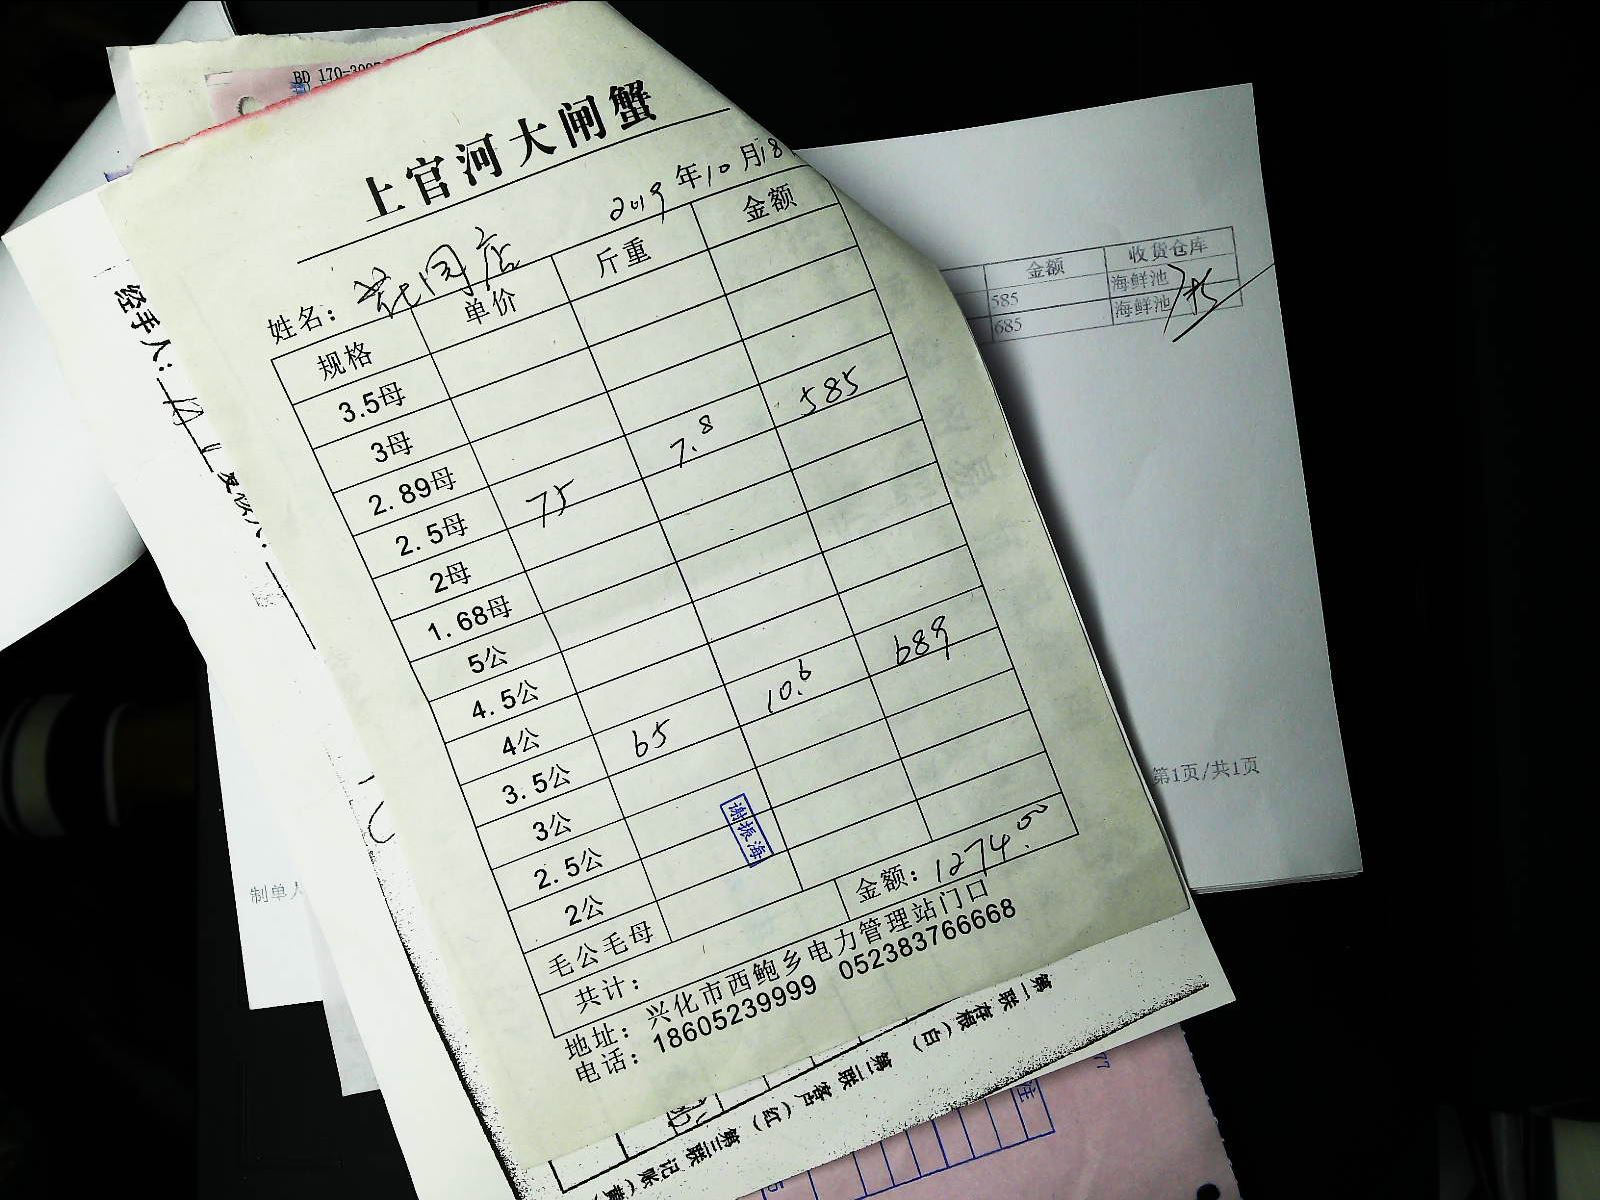 BD 170-300
上官河大闸蟹
2019年10月18
姓名：花园店
规格 单价 斤重 金额
3.5母
3母
2.89母
2.5母 75 7.8 585
2母
1.68母
5公
4.5公
4公
3.5公 65 10.6 689
3公
2.5公
2公
毛公毛母
谢振海
共计： 金额：1274.00
地址：兴化市西鲍乡电力管理站门口
电话：18605239999 052383766668
经手人：
金额 收货仓库
585 海鲜池
685 海鲜池
第1页/共1页
制单人
第一联存根(白) 第二联客户(红) 第三联记账(黄)